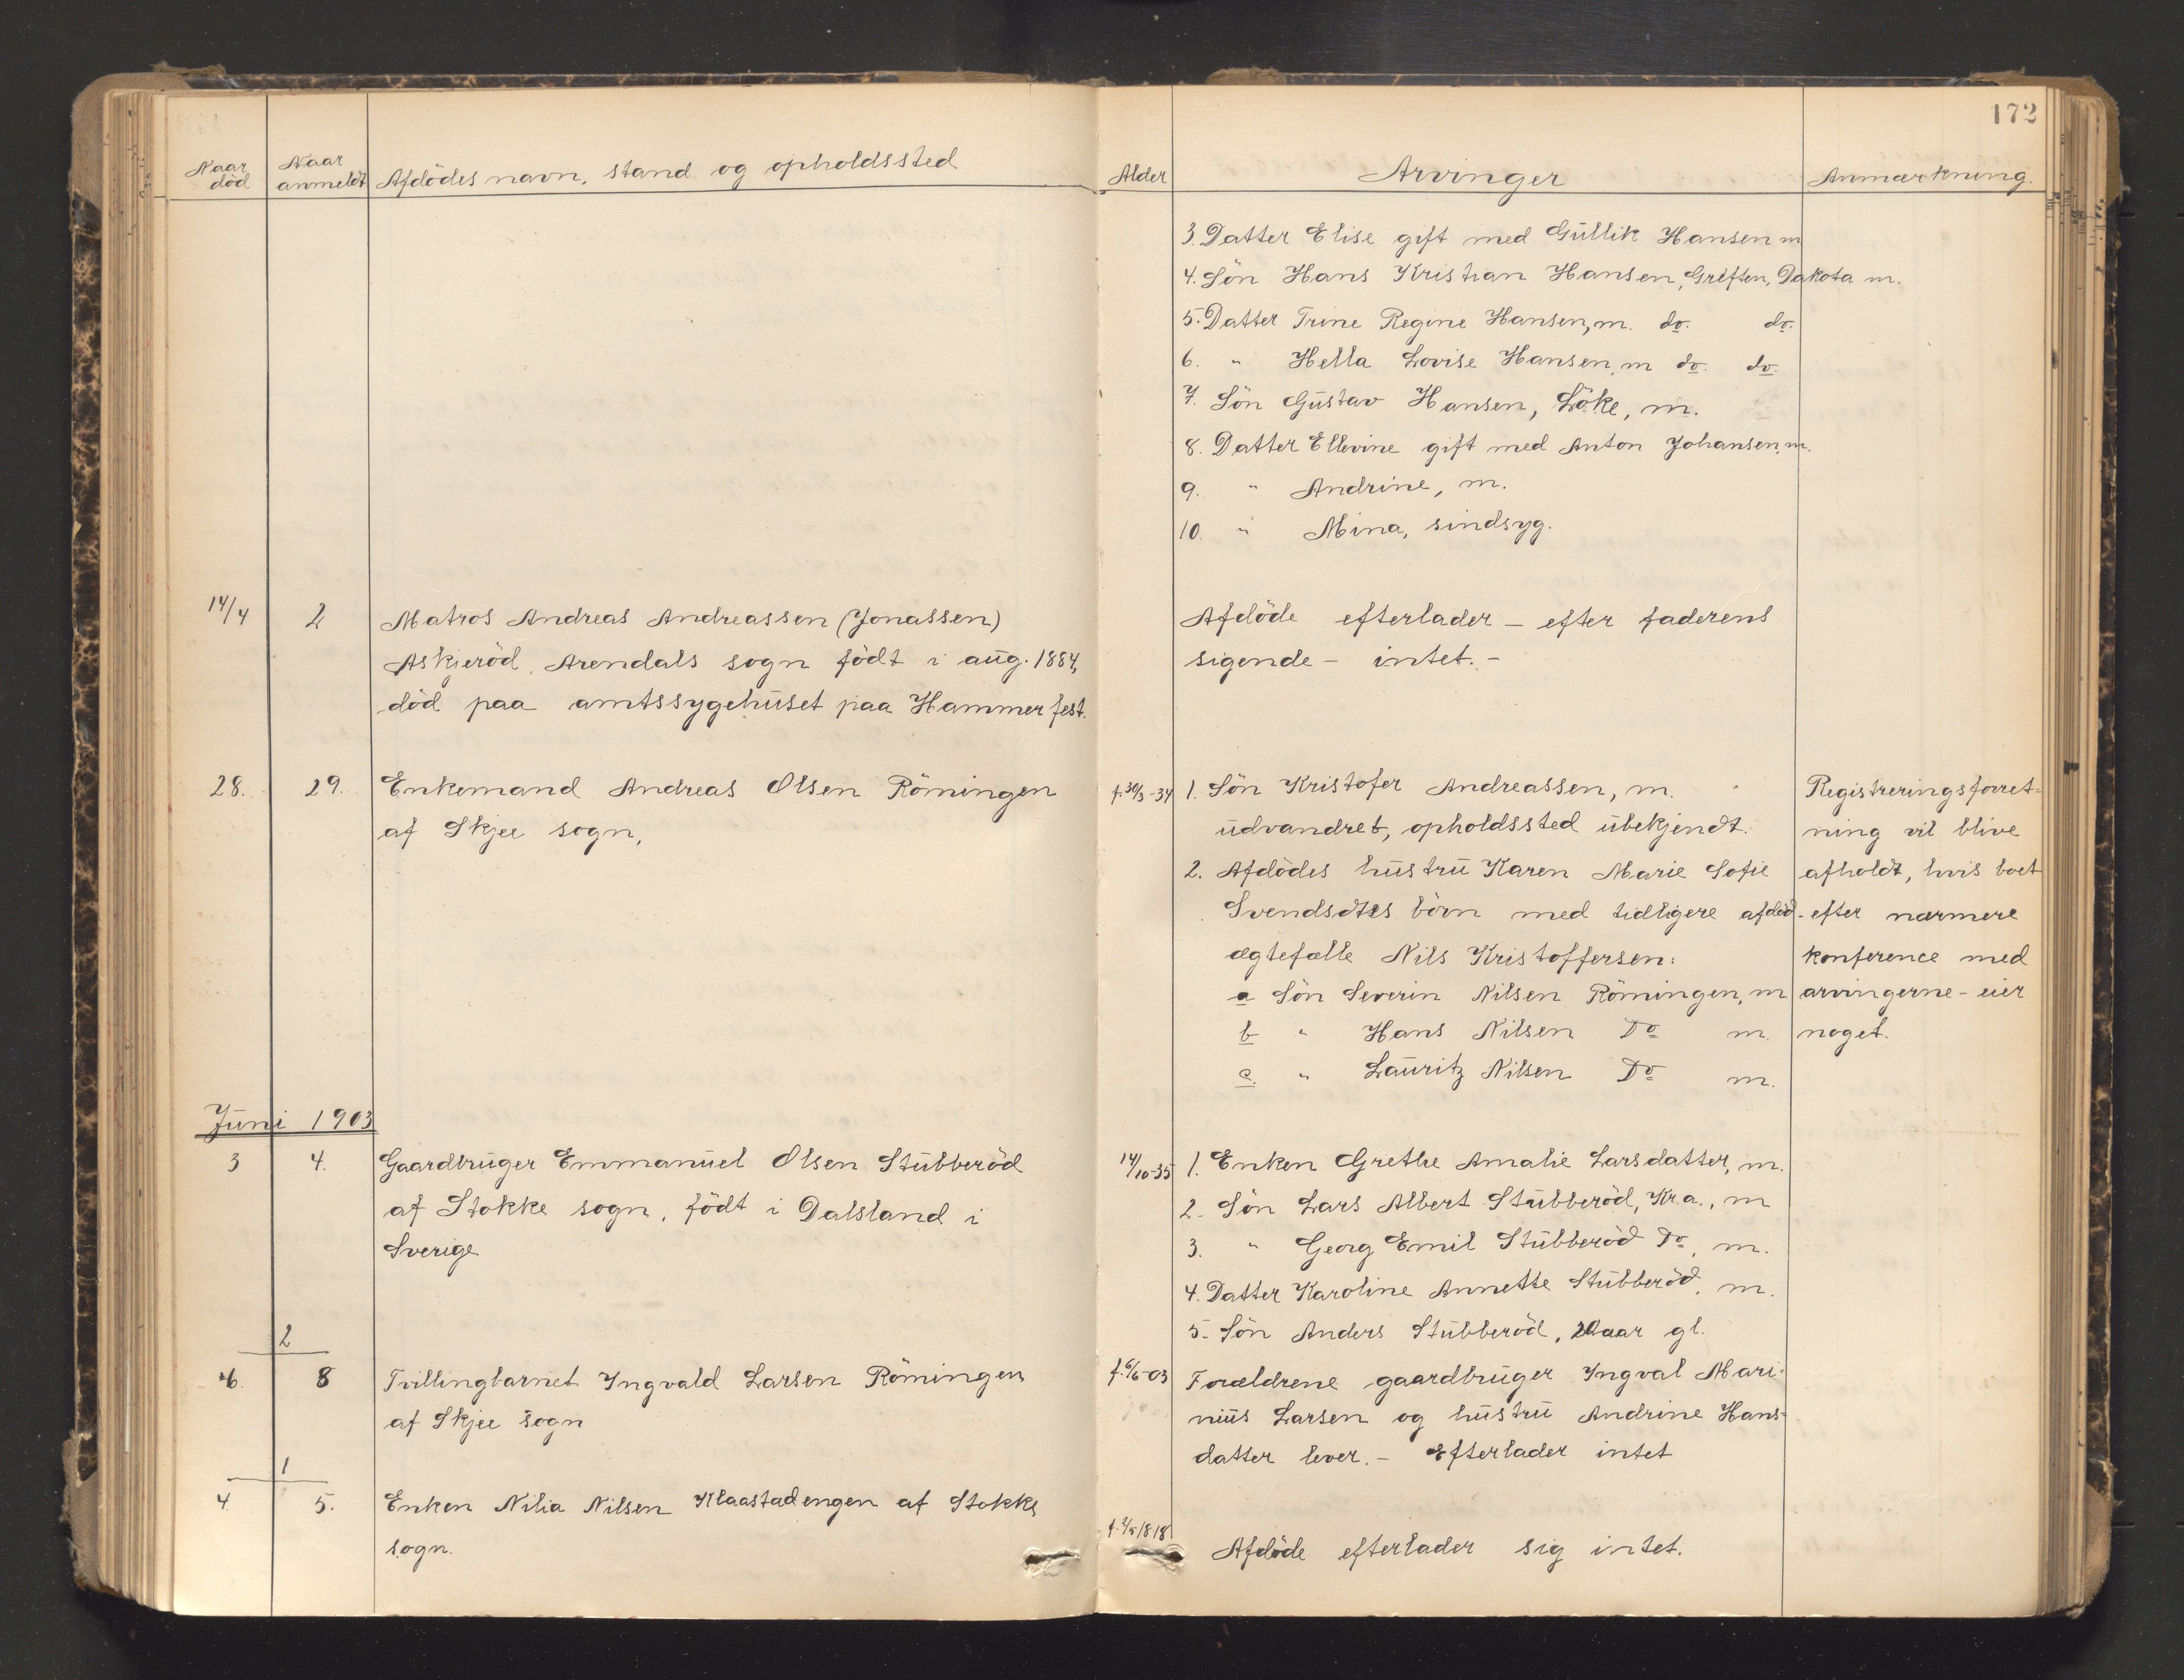 172
Naar død
Naar anmeldt
Afdödes navn, stand og opholdssted
Alder
Arvinger
Anmærkning.
3. Datter Elise gift med Gullik Hansen m
4. Sön Hans Kristian Hansen, Greften, Dakota m.
5. Datter Trine Regine Hansen, m. do. do.
6. " Hella Lovise Hansen, m do. do.
7. Sön Gustav Hansen, Löke, m.
8. Datter Ellevine gift med Anton Johansen, m.
9. " Andrine, m.
10. " Mina, sindsyg.
14/4 2 Matros Andreas Andreassen (Jonassen)
Askjeröd, Arendals sogn födt i aug. 1884,
död paa amtssygehuset paa Hammerfest.
Afdöde efterlader - efter faderens
sigende - intet. -
28. 29. Enkemand Andreas Olsen Römingen
af Skjee sogn,
f. 30/3-34 1. Sön Kristofer Andreassen, m.
udvandret, opholdssted ubekjendt.
2. Afdödes hustru Karen Marie Sofie
Svendsdtrs börn med tidligere afdöd
ægtefælle Nils Kristoffersen:
a Sön Severin Nilsen Römingen, m
b " Hans Nilsen Do m.
c. " Lauritz Nilsen Do m.
Registreringsforret=
ning vil blive
afholdt, hvis boet
- efter nærmere
konference med
arvingerne - eier
noget.
Juni 1903
3 4. Gaardbruger Emmanuel Olsen Stubberöd
af Stokke sogn, födt i Dalsland i
Sverige
14/10-35 1. Enken Grethe Amalie Larsdatter, m.
2. Sön Lars Albert Stubberöd, Kr.a., m
3. " Georg Emil Stubberöd Do, m.
4. Datter Karoline Annette Stubberöd, m.
5. Sön Anders Stubberöd, 20 aar gl.
2
6. 8 Tvillingbarnet Yngvald Larsen Römingen
af Skjee sogn
f. 6/6-03 Forældrene gaardbruger Yngval Mari=
nius Larsen og hustru Andrine Hans-
datter lever. - Efterlader intet
1
4. 5. Enken Nilia Nilsen Klaastadengen af Stokke
sogn.
Afdöde efterlader sig intet.